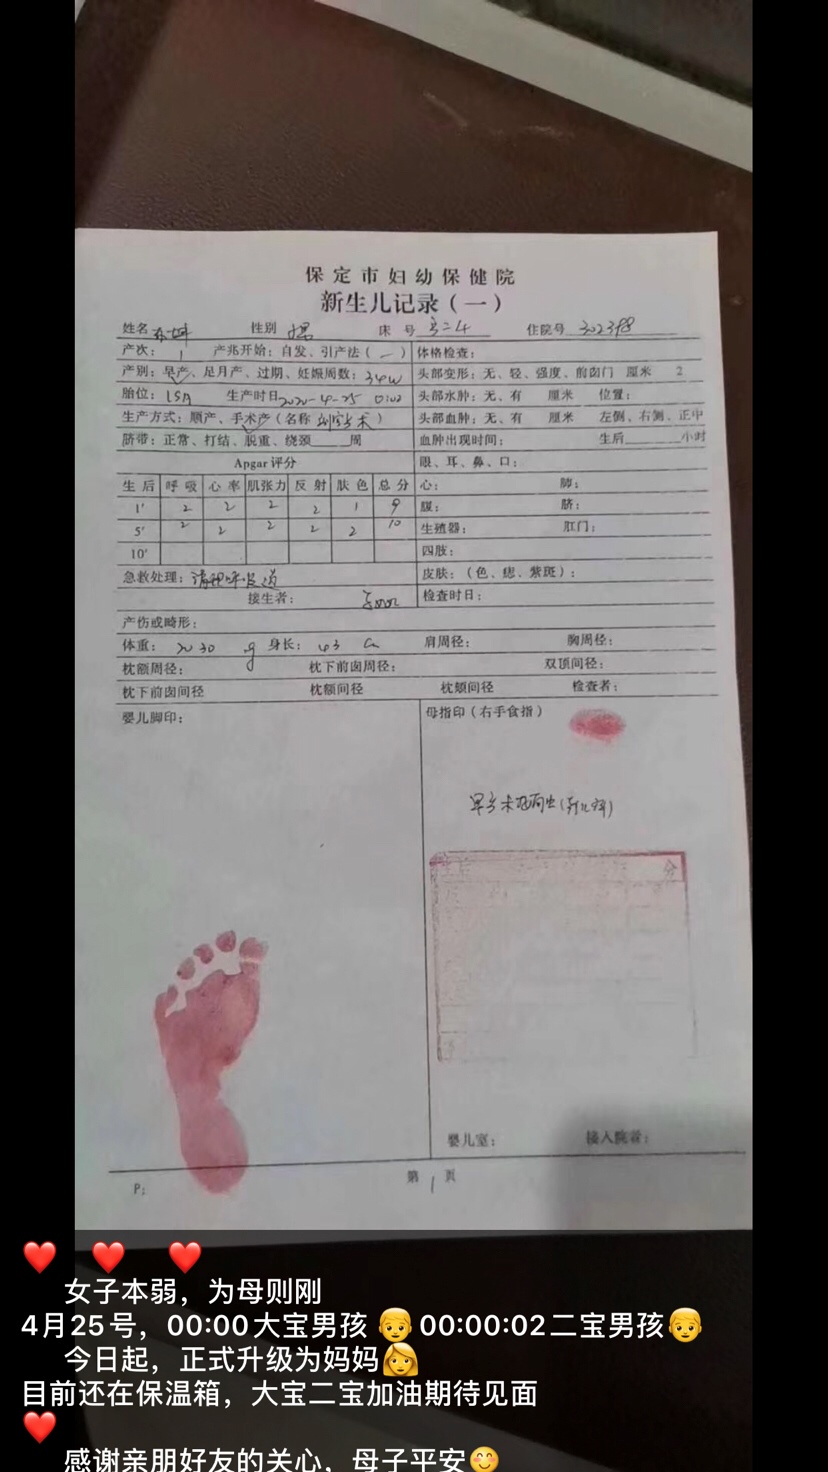 保定市妇幼保健院
新生儿记录(一)
姓名 性别 男 床号 住院号 302398
产次: 1 产兆开始:自发、引产法(一) 体格检查:
产别:早产、足月产、过期、妊娠周数:34w 头部变形:无、轻、强度、前囟门 厘米 2
胎位:LSA 生产时日 2020-4-25 0:02 头部水肿:无、有 厘米 位置:
生产方式:顺产、手术产(名称 剖宫术) 头部血肿:无、有 厘米 左侧、右侧、正中
脐带:正常、打结、脱重、绕颈____周 血肿出现时间: 生后____小时
Apgar评分 眼、耳、鼻、口:
生后 呼吸 心率 肌张力 反射 肤色 总分 心: 肺:
1' 2 2 2 2 1 9 腹: 脐:
5' 2 2 2 2 2 10 生殖器: 肛门:
10' 四肢:
急救处理:清理呼吸道 皮肤:(色、痣、紫斑):
接生者: 检查时日:
产伤或畸形:
体重: 2030 g 身长: 43 cm 肩周径: 胸周径:
枕额周径: 枕下前囟周径: 双顶间径:
枕下前囟间径 枕额间径 枕颏间径 检查者:
婴儿脚印: 母指印(右手食指)
早产未吸奶出(新儿科)
分
婴儿室: 接入院者:
第 1 页
P:
❤️ ❤️ ❤️
女子本弱,为母则刚
4月25号,00:00大宝男孩👦00:00:02二宝男孩👦
今日起,正式升级为妈妈👩
目前还在保温箱,大宝二宝加油期待见面
❤️
感谢亲朋好友的关心,母子平安😊